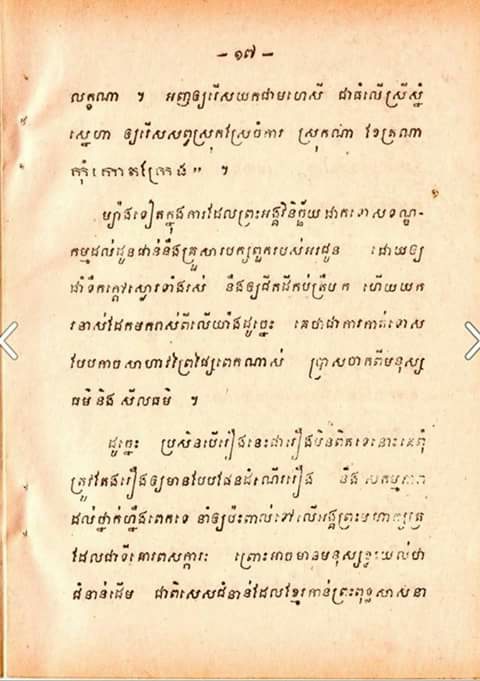 – ១៧ –
លក្ខណា ។ អញឲ្យរើសយកជាមហេសី ជាធំលើស្រីស្នំ
ស្នេហា ឲ្យរើសសព្វស្រុកស្រែចំការ ស្រុកណា ខែត្រណា
កុំ ក្រែង" ។
ម្យ៉ាងទៀតក្នុងការដែលព្រះអង្គវិនិច្ឆ័យដាក់ទោសទណ្ឌ-
កម្មដល់ដូនជាន់នឹងគ្រួសារបក្សពួករបស់អរដូន ដោយឲ្យ
ដាំទឹកក្ដៅស្រោចទាំងរស់ នឹងឲ្យជីកដីកប់ត្រឹមក ហើយយក
រនាស់ដែកមករាស់ពីលើយ៉ាងដូច្នេះ គេថាជាការកាត់ទោស
បែបកាចសាហាវព្រៃផ្សៃពេកណាស់ ប្រាសចាកពីមនុស្ស
ធម៌ និង សីលធម៌ ។
ដូច្នេះ ប្រសិនបើរឿងនេះជារឿងមិនពិតទេនោះគេពុំ
ត្រូវតែងរឿងឲ្យមានបែបផែនដំណើររឿង នឹង សកម្មភាព
ដល់ថ្នាក់ហ្នឹងពេកទេ នាំឲ្យប៉ះពាល់ទៅលើអង្គព្រះមហាក្សត្រ
ដែលជាទីគោរពសក្ការៈ ព្រោះអាចមានមនុស្សខ្លះយល់ថា
ជំនាន់ដើម ជាពិសេសជំនាន់ដែលខ្មែរកាន់ព្រះពុទ្ធសាសនា